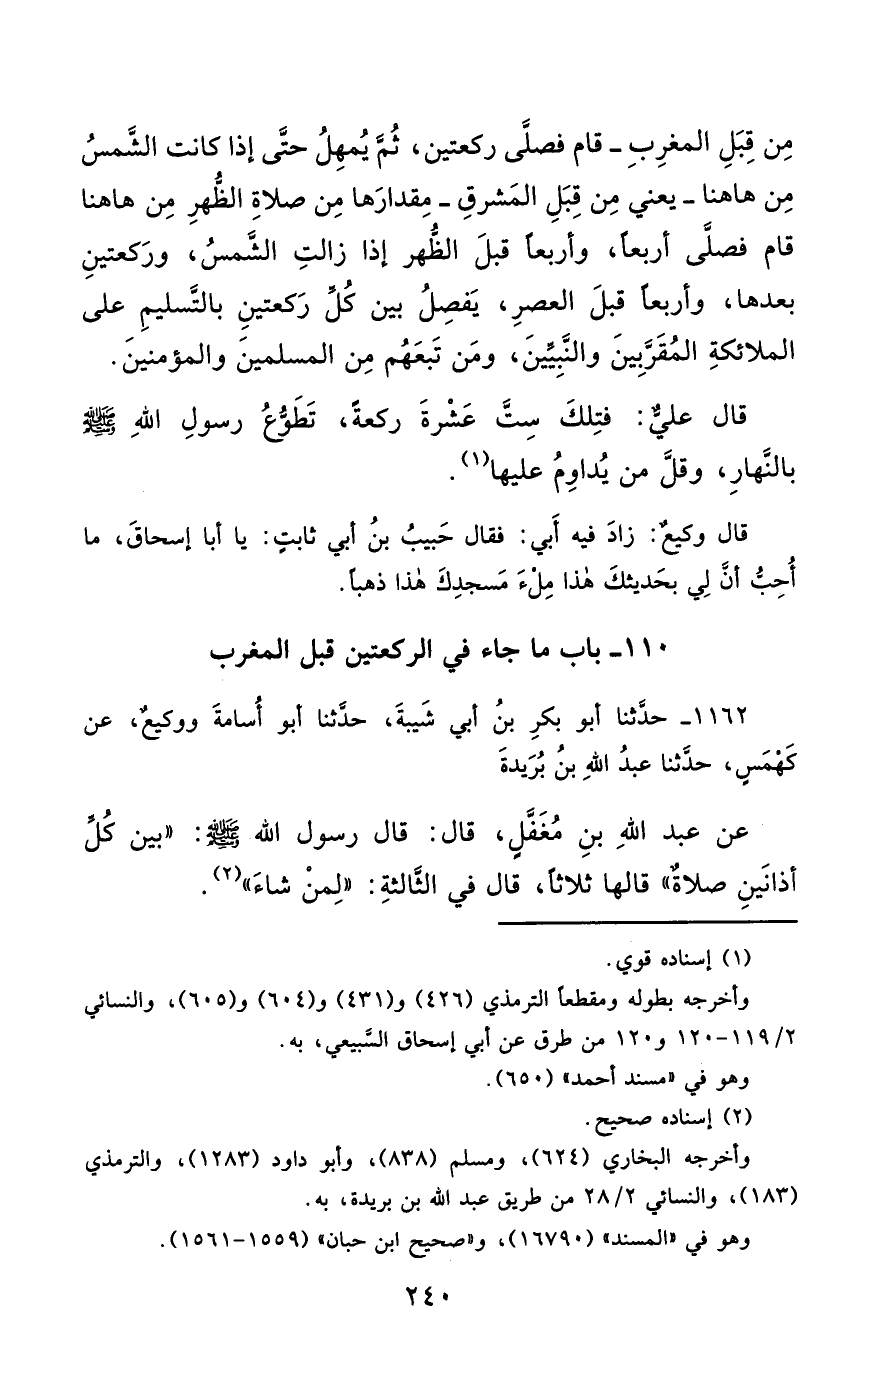 مِن قِبَلِ المغرِبِ ـ قام فصلَّى ركعتين، ثُمَّ يُمهِلُ حتَّى إذا كانت الشَّمسُ
مِن هاهنا ـ يعني مِن قِبَلِ المَشرقِ ـ مِقدارَها مِن صلاةِ الظُّهرِ مِن هاهنا
قام فصلَّى أربعاً، وأربعاً قبلَ الظُّهر إذا زالتِ الشَّمسُ، ورَكعتينِ
بعدها، وأربعاً قبلَ العصرِ، يَفصِلُ بين كُلِّ رَكعتينِ بالتَّسليمِ على
الملائكةِ المُقَرَّبينَ والنَّبيِّينَ، ومَن تَبعَهُم مِن المسلمينَ والمؤمنينَ.
قال عليٌّ: فتِلكَ سِتَّ عَشْرةَ ركعةً، تَطَوُّعُ رسولِ اللهِ ﷺ
بالنَّهارِ، وقلَّ من يُداوِمُ عليها(١).
قال وكيعٌ: زادَ فيه أَبي: فقال حَبيبُ بنُ أبي ثابتٍ: يا أبا إسحاقَ، ما
أُحِبُّ أنَّ لِي بحَديثكَ هٰذا مِلْءَ مَسجدِكَ هٰذا ذهباً.
١١٠ـ باب ما جاء في الركعتين قبل المغرب
١١٦٢ـ حدَّثنا أبو بكرِ بنُ أبي شَيبةَ، حدَّثنا أبو أُسامةَ ووكيعٌ، عن
كَهْمَسٍ، حدَّثنا عبدُ اللهِ بنُ بُرَيدةَ
عن عبد اللهِ بنِ مُغَفَّلٍ، قال: قال رسول الله ﷺ: «بين كُلِّ
أذانَينِ صلاةٌ» قالها ثلاثاً، قال في الثَّالثةِ: «لِمنْ شاءَ»(٢).
(١) إسناده قوي.
وأخرجه بطوله ومقطعاً الترمذي (٤٢٦) و(٤٣١) و(٦٠٤) و(٦٠٥)، والنسائي
٢/ ١١٩-١٢٠ و١٢٠ من طرق عن أبي إسحاق السَّبيعي، به.
وهو في «مسند أحمد» (٦٥٠).
(٢) إسناده صحيح.
وأخرجه البخاري (٦٢٤)، ومسلم (٨٣٨)، وأبو داود (١٢٨٣)، والترمذي
(١٨٣)، والنسائي ٢/ ٢٨ من طريق عبد الله بن بريدة، به.
وهو في «المسند» (١٦٧٩٠)، و«صحيح ابن حبان» (١٥٥٩-١٥٦١).
٢٤٠